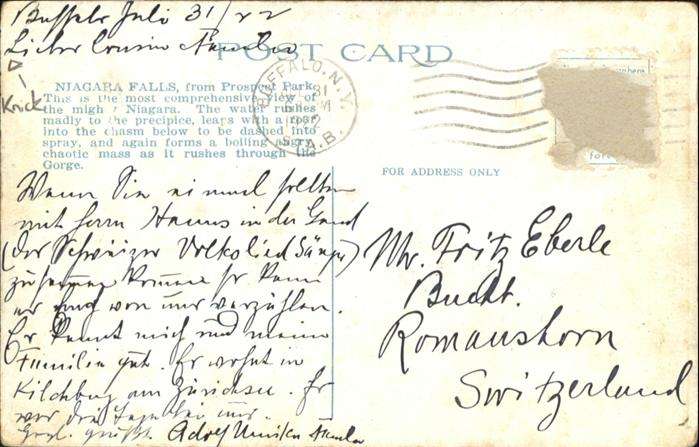 Buffalo Juli 31/22
Lieber Cousin Familie
Krick
POST CARD
NIAGARA FALLS, from Prospect Park.
This is the most comprehensive view of
the mighty Niagara. The water rushes
madly to the precipice, leaps with a roar
into the chasm below to be dashed into
spray, and again forms a boiling angry
chaotic mass as it rushes through the
Gorge.
BUFFALO, N.Y.
31
FOR ADDRESS ONLY
Wenn Sie einmal sollten
mit Herrn Hanns in der Gand
(der Schweizer Volkslied Sänger)
zusammen kommen so kann
er auch von uns erzählen.
Er kennt mich und meine
Familie gut. Er wohnt in
Kilchberg am Zürichsee. Er
war drei Tage bei uns.
gegrüßt. Adolf Familie
Mr. Fritz Eberle
Bucht.
Romanshorn
Switzerland